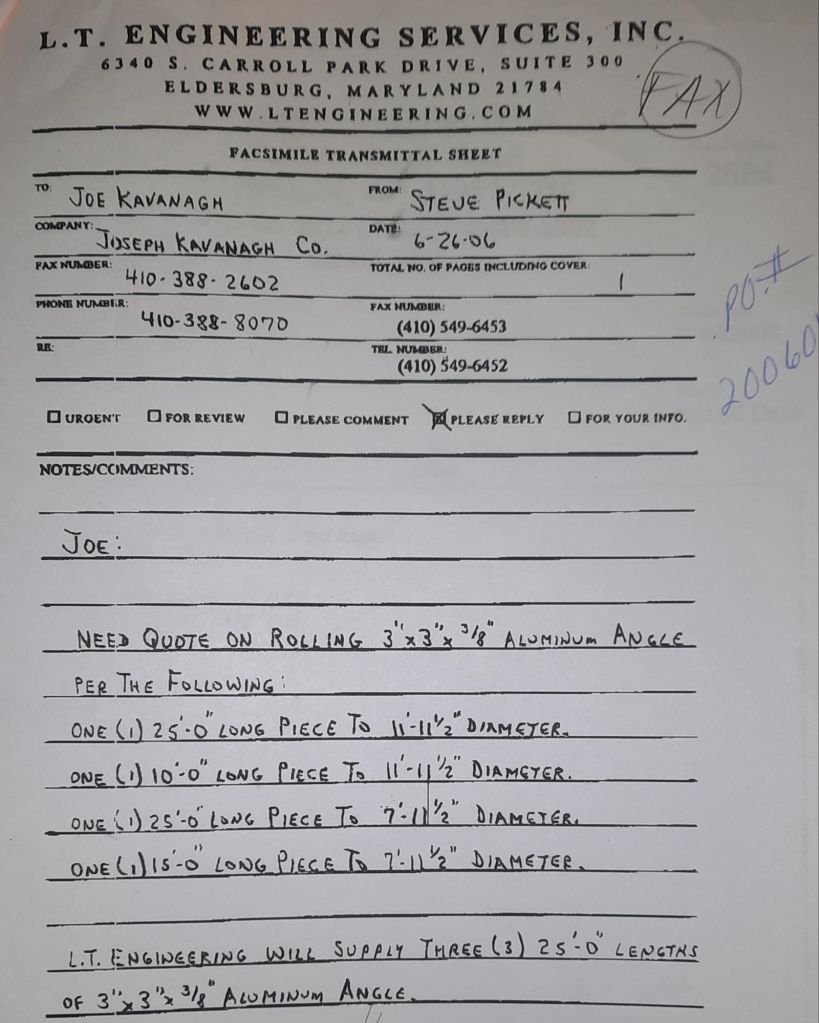 L.T. ENGINEERING SERVICES, INC.
6340 S. CARROLL PARK DRIVE, SUITE 300
ELDERSBURG, MARYLAND 21784
WWW.LTENGINEERING.COM
FAX
FACSIMILE TRANSMITTAL SHEET
TO: JOE KAVANAGH FROM: STEVE PICKETT
COMPANY: JOSEPH KAVANAGH CO. DATE: 6-26-06
FAX NUMBER: 410-388-2602 TOTAL NO. OF PAGES INCLUDING COVER: 1
PHONE NUMBER: 410-388-8070 FAX NUMBER: (410) 549-6453
RE: TEL. NUMBER: (410) 549-6452
PO.#
20060
☐ URGENT ☐ FOR REVIEW ☐ PLEASE COMMENT ☒ PLEASE REPLY ☐ FOR YOUR INFO.
NOTES/COMMENTS:
JOE:
NEED QUOTE ON ROLLING 3"x3"x3/8" ALUMINUM ANGLE
PER THE FOLLOWING:
ONE (1) 25'-0" LONG PIECE TO 11'-11 1/2" DIAMETER.
ONE (1) 10'-0" LONG PIECE TO 11'-11 1/2" DIAMETER.
ONE (1) 25'-0" LONG PIECE TO 7'-11 1/2" DIAMETER.
ONE (1) 15'-0" LONG PIECE TO 7'-11 1/2" DIAMETER.
L.T. ENGINEERING WILL SUPPLY THREE (3) 25'-0" LENGTHS
OF 3"x3"x3/8" ALUMINUM ANGLE.